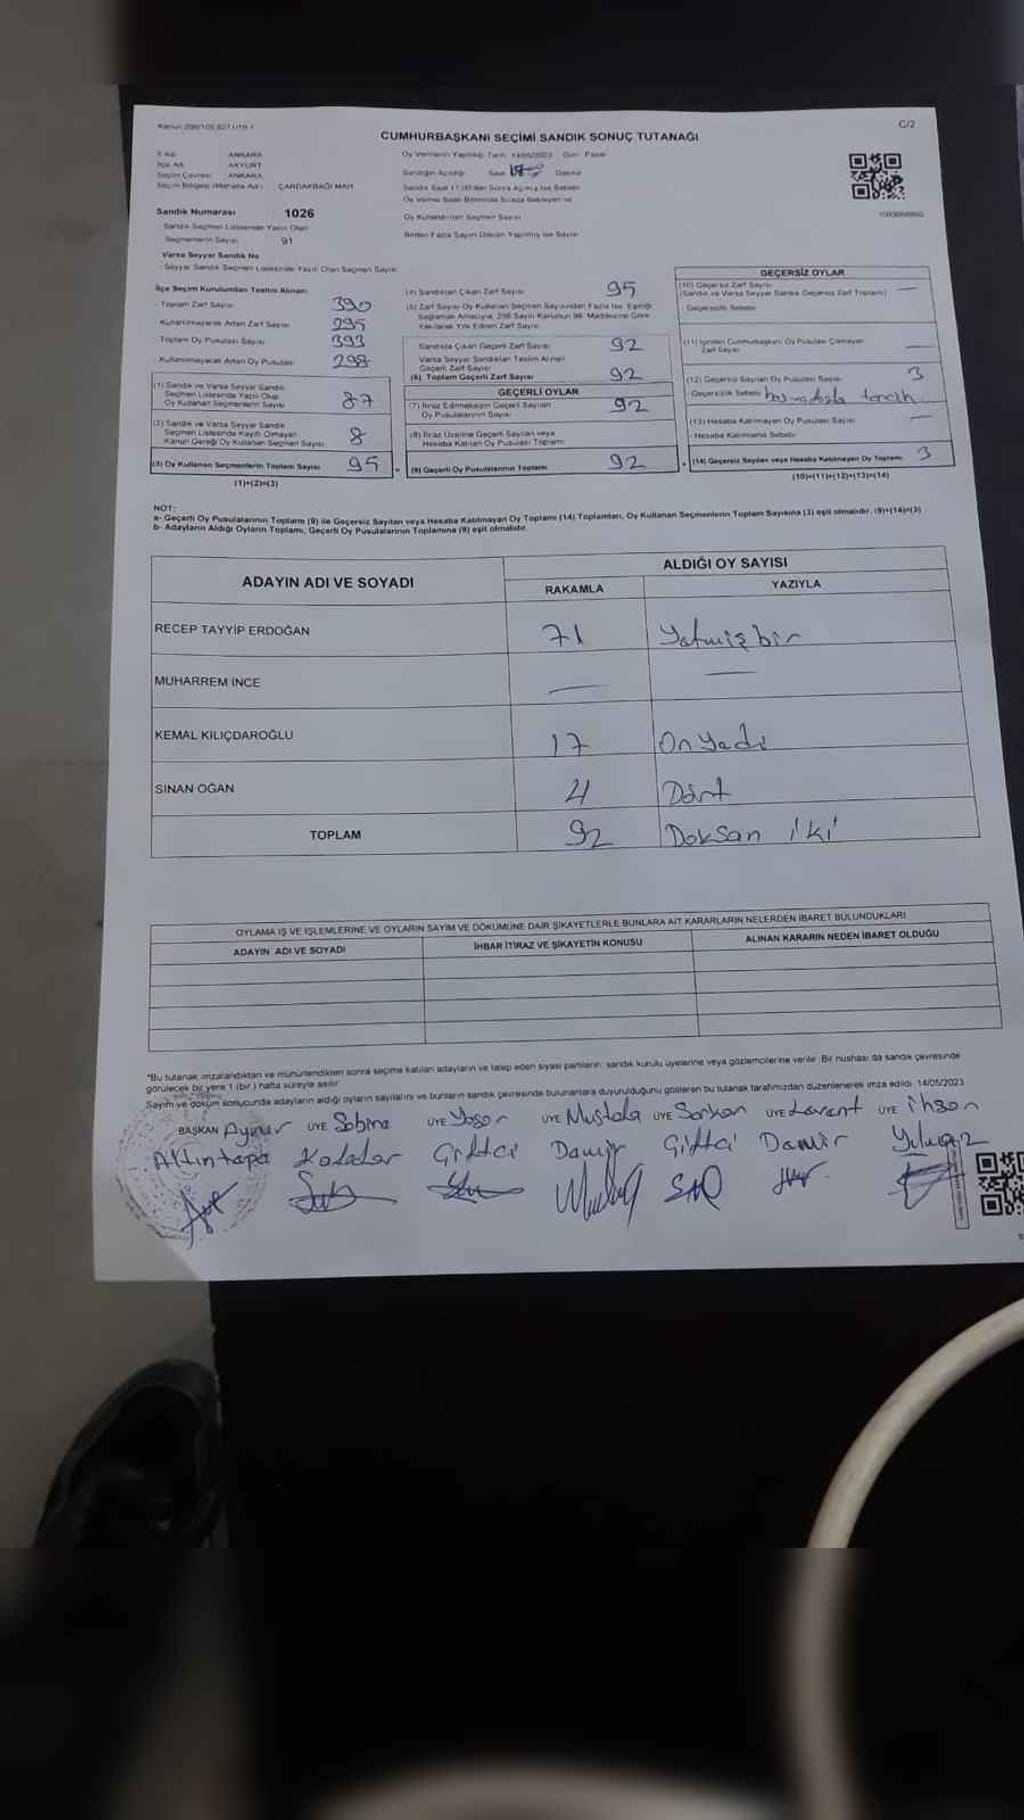 C/2
CUMHURBAŞKANI SEÇİMİ SANDIK SONUÇ TUTANAĞI
İl Adı ANKARA
İlçe Adı AKYURT
Seçim Çevresi ANKARA
Seçim Bölgesi (Mahalle Adı) ÇARDAKBAĞI MAH
Oy Vermenin Yapıldığı Tarih 14/05/2023 Gün: Pazar
Sandığın Açıldığı Saat Dakika
Sandık Saat 17.00'dan Sonra Açılmış İse Sebebi
Oy Kullandırılan Seçmen Sayısı
Birden Fazla Sayım Döküm Yapılmış İse Sayısı
Sandık Numarası 1026
Sandık Seçmen Listesinde Yazılı Olan
Seçmenlerin Sayısı 91
Varsa Seyyar Sandık No
Seyyar Sandık Seçmen Listesinde Yazılı Olan Seçmen Sayısı
İlçe Seçim Kurulundan Teslim Alınan:
- Toplam Zarf Sayısı 390
- Kullanılmayarak Artan Zarf Sayısı 295
- Toplam Oy Pusulası Sayısı 393
- Kullanılmayarak Artan Oy Pusulası 298
(1) Sandık ve Varsa Seyyar Sandık
Seçmen Listesinde Yazılı Olup
Oy Kullanan Seçmenlerin Sayısı 87
(2) Sandık ve Varsa Seyyar Sandık
Seçmen Listesinde Kayıtlı Olmayan
Kanun Gereği Oy Kullanan Seçmen Sayısı 8
(3) Oy Kullanan Seçmenlerin Toplam Sayısı 95
(1)+(2)=(3)
(4) Sandıktan Çıkan Zarf Sayısı 95
(5) Zarf Sayısı Oy Kullanan Seçmen Sayısından Fazla İse, Eşitliği
Sağlamak Amacıyla, 298 Sayılı Kanunun 98. Maddesine Göre
Yakılarak Yok Edilen Zarf Sayısı
Sandıkta Çıkan Geçerli Zarf Sayısı 92
Varsa Seyyar Sandıktan Teslim Alınan
Geçerli Zarf Sayısı
(6) Toplam Geçerli Zarf Sayısı 92
GEÇERLİ OYLAR
(7) İtiraz Edilmeksizin Geçerli Sayılan
Oy Pusulalarının Sayısı 92
(8) İtiraz Üzerine Geçerli Sayılan veya
Hesaba Katılan Oy Pusulası Toplamı
(9) Geçerli Oy Pusulalarının Toplamı 92
GEÇERSİZ OYLAR
(10) Geçersiz Zarf Sayısı —
(Sandık ve Varsa Seyyar Sandık Geçersiz Zarf Toplamı)
- Geçersizlik Sebebi
(11) İçinden Cumhurbaşkanı Oy Pusulası Çıkmayan
Zarf Sayısı —
(12) Geçersiz Sayılan Oy Pusulası Sayısı 3
- Geçersizlik Sebebi tercih
(13) Hesaba Katılmayan Oy Pusulası Sayısı —
- Hesaba Katılmama Sebebi
(14) Geçersiz Sayılan veya Hesaba Katılmayan Oy Toplamı 3
(10)+(11)+(12)+(13)=(14)
NOT:
a- Geçerli Oy Pusulalarının Toplamı (9) ile Geçersiz Sayılan veya Hesaba Katılmayan Oy Toplamı (14) Toplamları, Oy Kullanan Seçmenlerin Toplam Sayısına (3) eşit olmalıdır. (9)+(14)=(3)
b- Adayların Aldığı Oyların Toplamı, Geçerli Oy Pusulalarının Toplamına (9) eşit olmalıdır.
ADAYIN ADI VE SOYADI ALDIĞI OY SAYISI
RAKAMLA YAZIYLA
RECEP TAYYİP ERDOĞAN 71 Yetmiş bir
MUHARREM İNCE — —
KEMAL KILIÇDAROĞLU 17 On yedi
SİNAN OĞAN 4 Dört
TOPLAM 92 Doksan iki
OYLAMA İŞ VE İŞLEMLERİNE VE OYLARIN SAYIM VE DÖKÜMÜNE DAİR ŞİKAYETLERLE BUNLARA AİT KARARLARIN NELERDEN İBARET BULUNDUKLARI
ADAYIN ADI VE SOYADI İHBAR İTİRAZ VE ŞİKAYETİN KONUSU ALINAN KARARIN NEDEN İBARET OLDUĞU
*Bu tutanak, imzalandıktan ve mühürlendikten sonra seçime katılan adayların ve talep eden siyasi partilerin, sandık kurulu üyelerine veya gözlemcilerine verilir. Bir nüshası da sandık çevresinde
görülecek bir yere 1 (bir) hafta süreyle asılır.
Sayım ve döküm sonucunda adayların aldığı oyların sayılarını ve bunların sandık çevresinde bulunanlara duyurulduğunu gösteren bu tutanak tarafımızdan düzenlenerek imza edildi. 14/05/2023
BAŞKAN Aynur ÜYE Sabina ÜYE Yaşar ÜYE Mustafa ÜYE Serkan ÜYE Levent ÜYE İhsan
Altıntapa Çiftci Demir Çiftci Demir Yılmaz